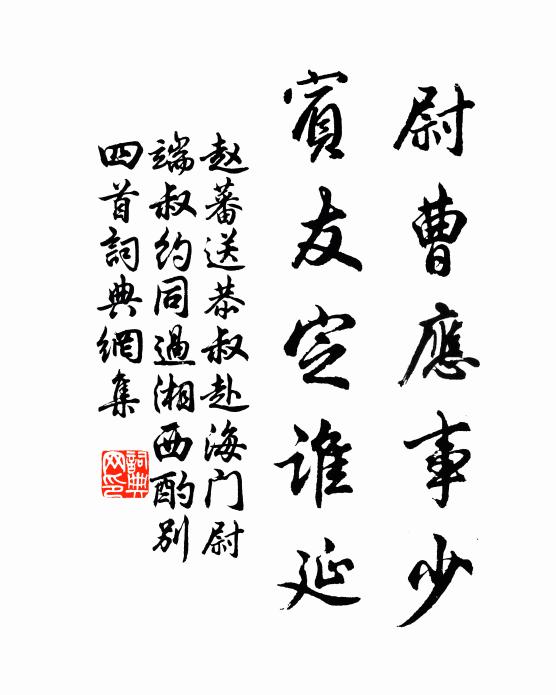 尉曹應事少
賓友定誰延
赵蕃送恭叔赴海门尉
端叔约同過湘西酌别
四首詞典網集
詞典网印